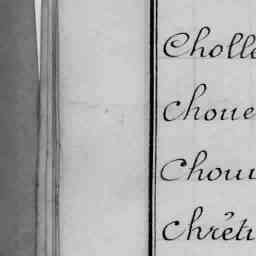 Cholle
Choue
Chou
Chréti